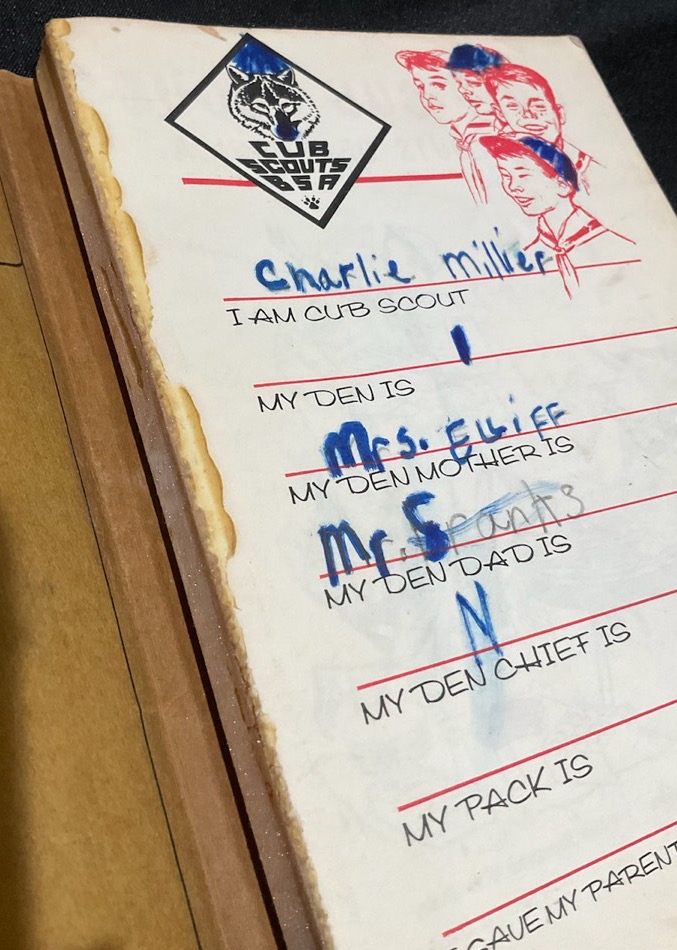 CUB
SCOUTS
BSA
Charlie Miller
I AM CUB SCOUT
1
MY DEN IS
Mrs. Elliff
MY DEN MOTHER IS
Mr. S Franks
MY DEN DAD IS
N
MY DEN CHIEF IS
MY PACK IS
GAVE MY PARENT